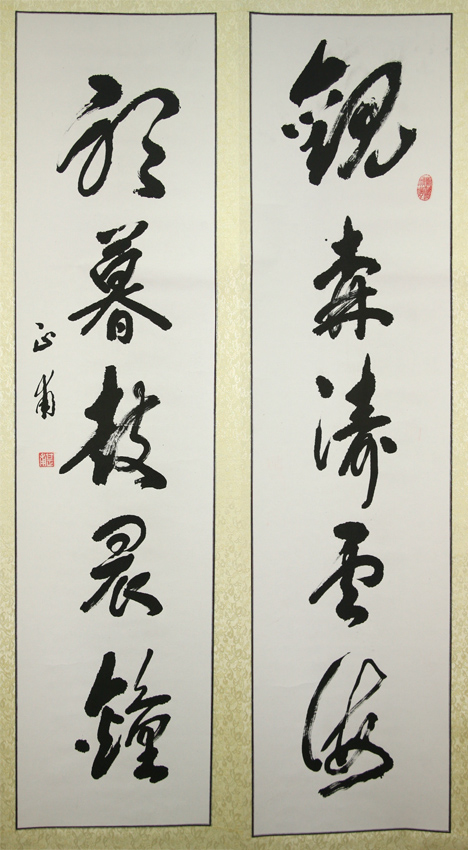 觀奔濤雲海
聽暮鼓晨鐘
正甫